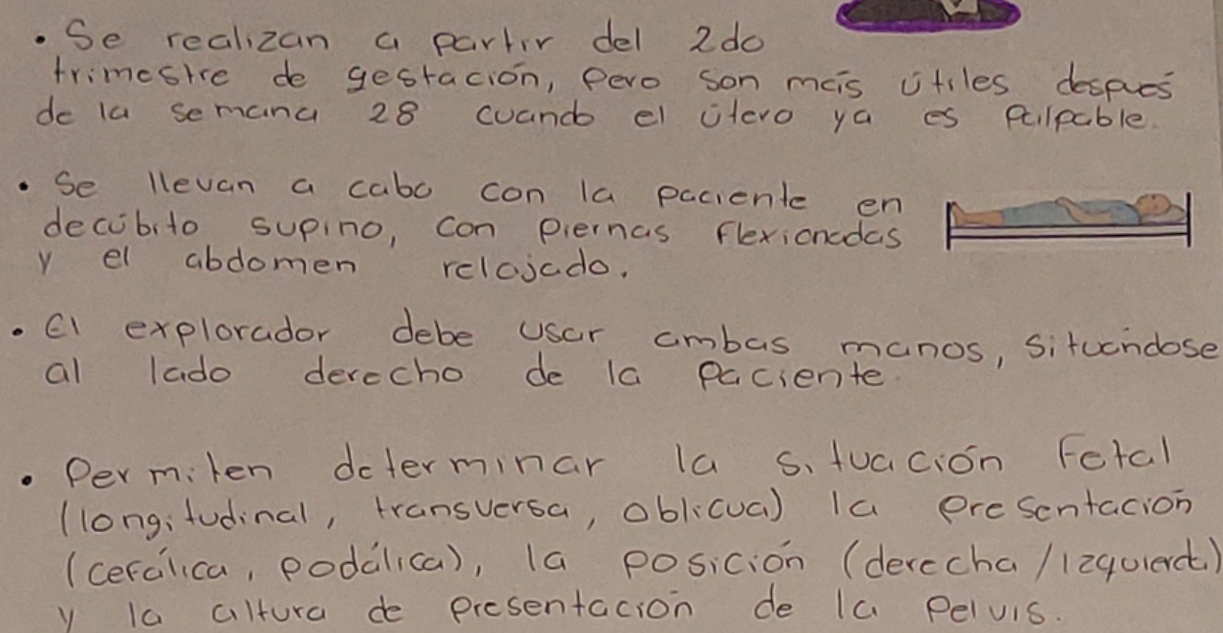 • Se realizan a partir del 2do
trimestre de gestación, pero son más útiles después
de la semana 28 cuando el útero ya es palpable.
• Se llevan a cabo con la paciente en
decúbito supino, con piernas flexionadas
y el abdomen relajado.
• El explorador debe usar ambas manos, situándose
al lado derecho de la paciente.
• Permiten determinar la situación fetal
(longitudinal, transversa, oblicua) la presentación
(cefálica, podálica), la posición (derecha/izquierda)
y la altura de presentación de la pelvis.